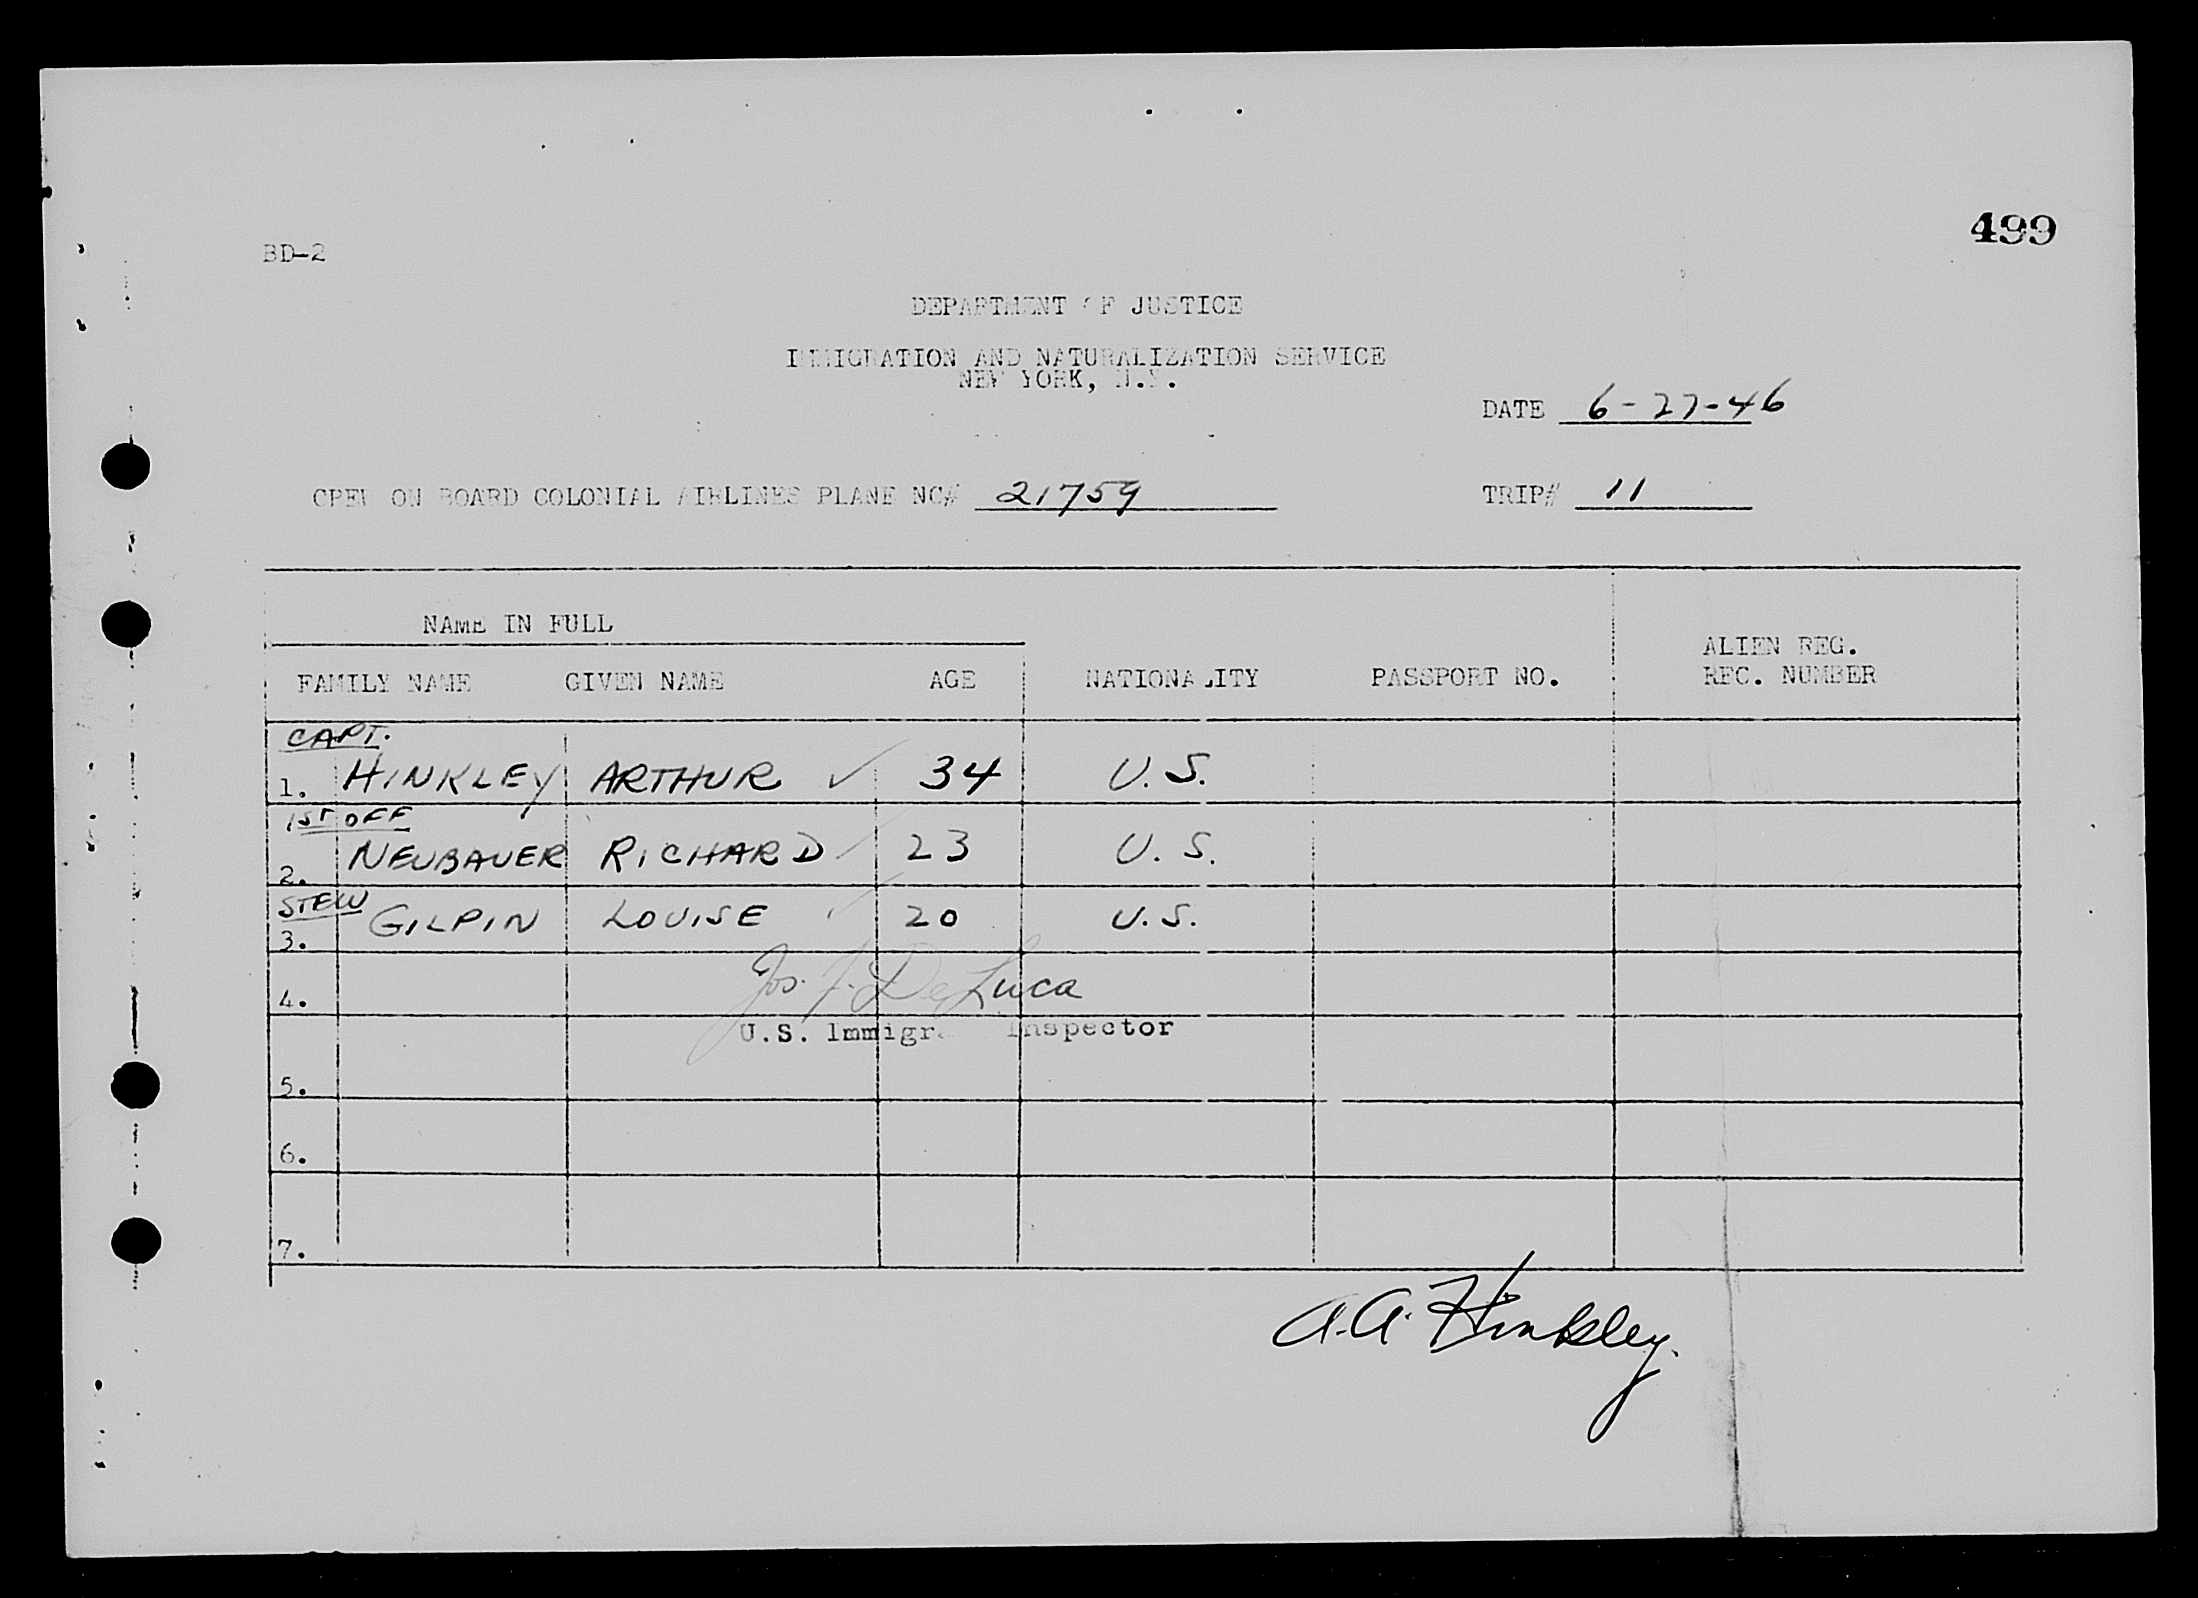 499
BD-2
DEPARTMENT OF JUSTICE
IMMIGRATION AND NATURALIZATION SERVICE
NEW YORK, N.Y.
DATE 6-27-46
CREW ON BOARD COLONIAL AIRLINES PLANE NC# 21759 TRIP# 11
NAME IN FULL
ALIEN REG.
FAMILY NAME GIVEN NAME AGE NATIONALITY PASSPORT NO. REC. NUMBER
CAPT.
1. HINKLEY ARTHUR ✓ 34 U.S.
1ST OFF
2. NEUBAUER RICHARD ✓ 23 U.S.
STEW
3. GILPIN LOUISE ✓ 20 U.S.
Jos. J. DeLuca
4.
U.S. Immigrant Inspector
5.
6.
7.
A.A. Hinkley.